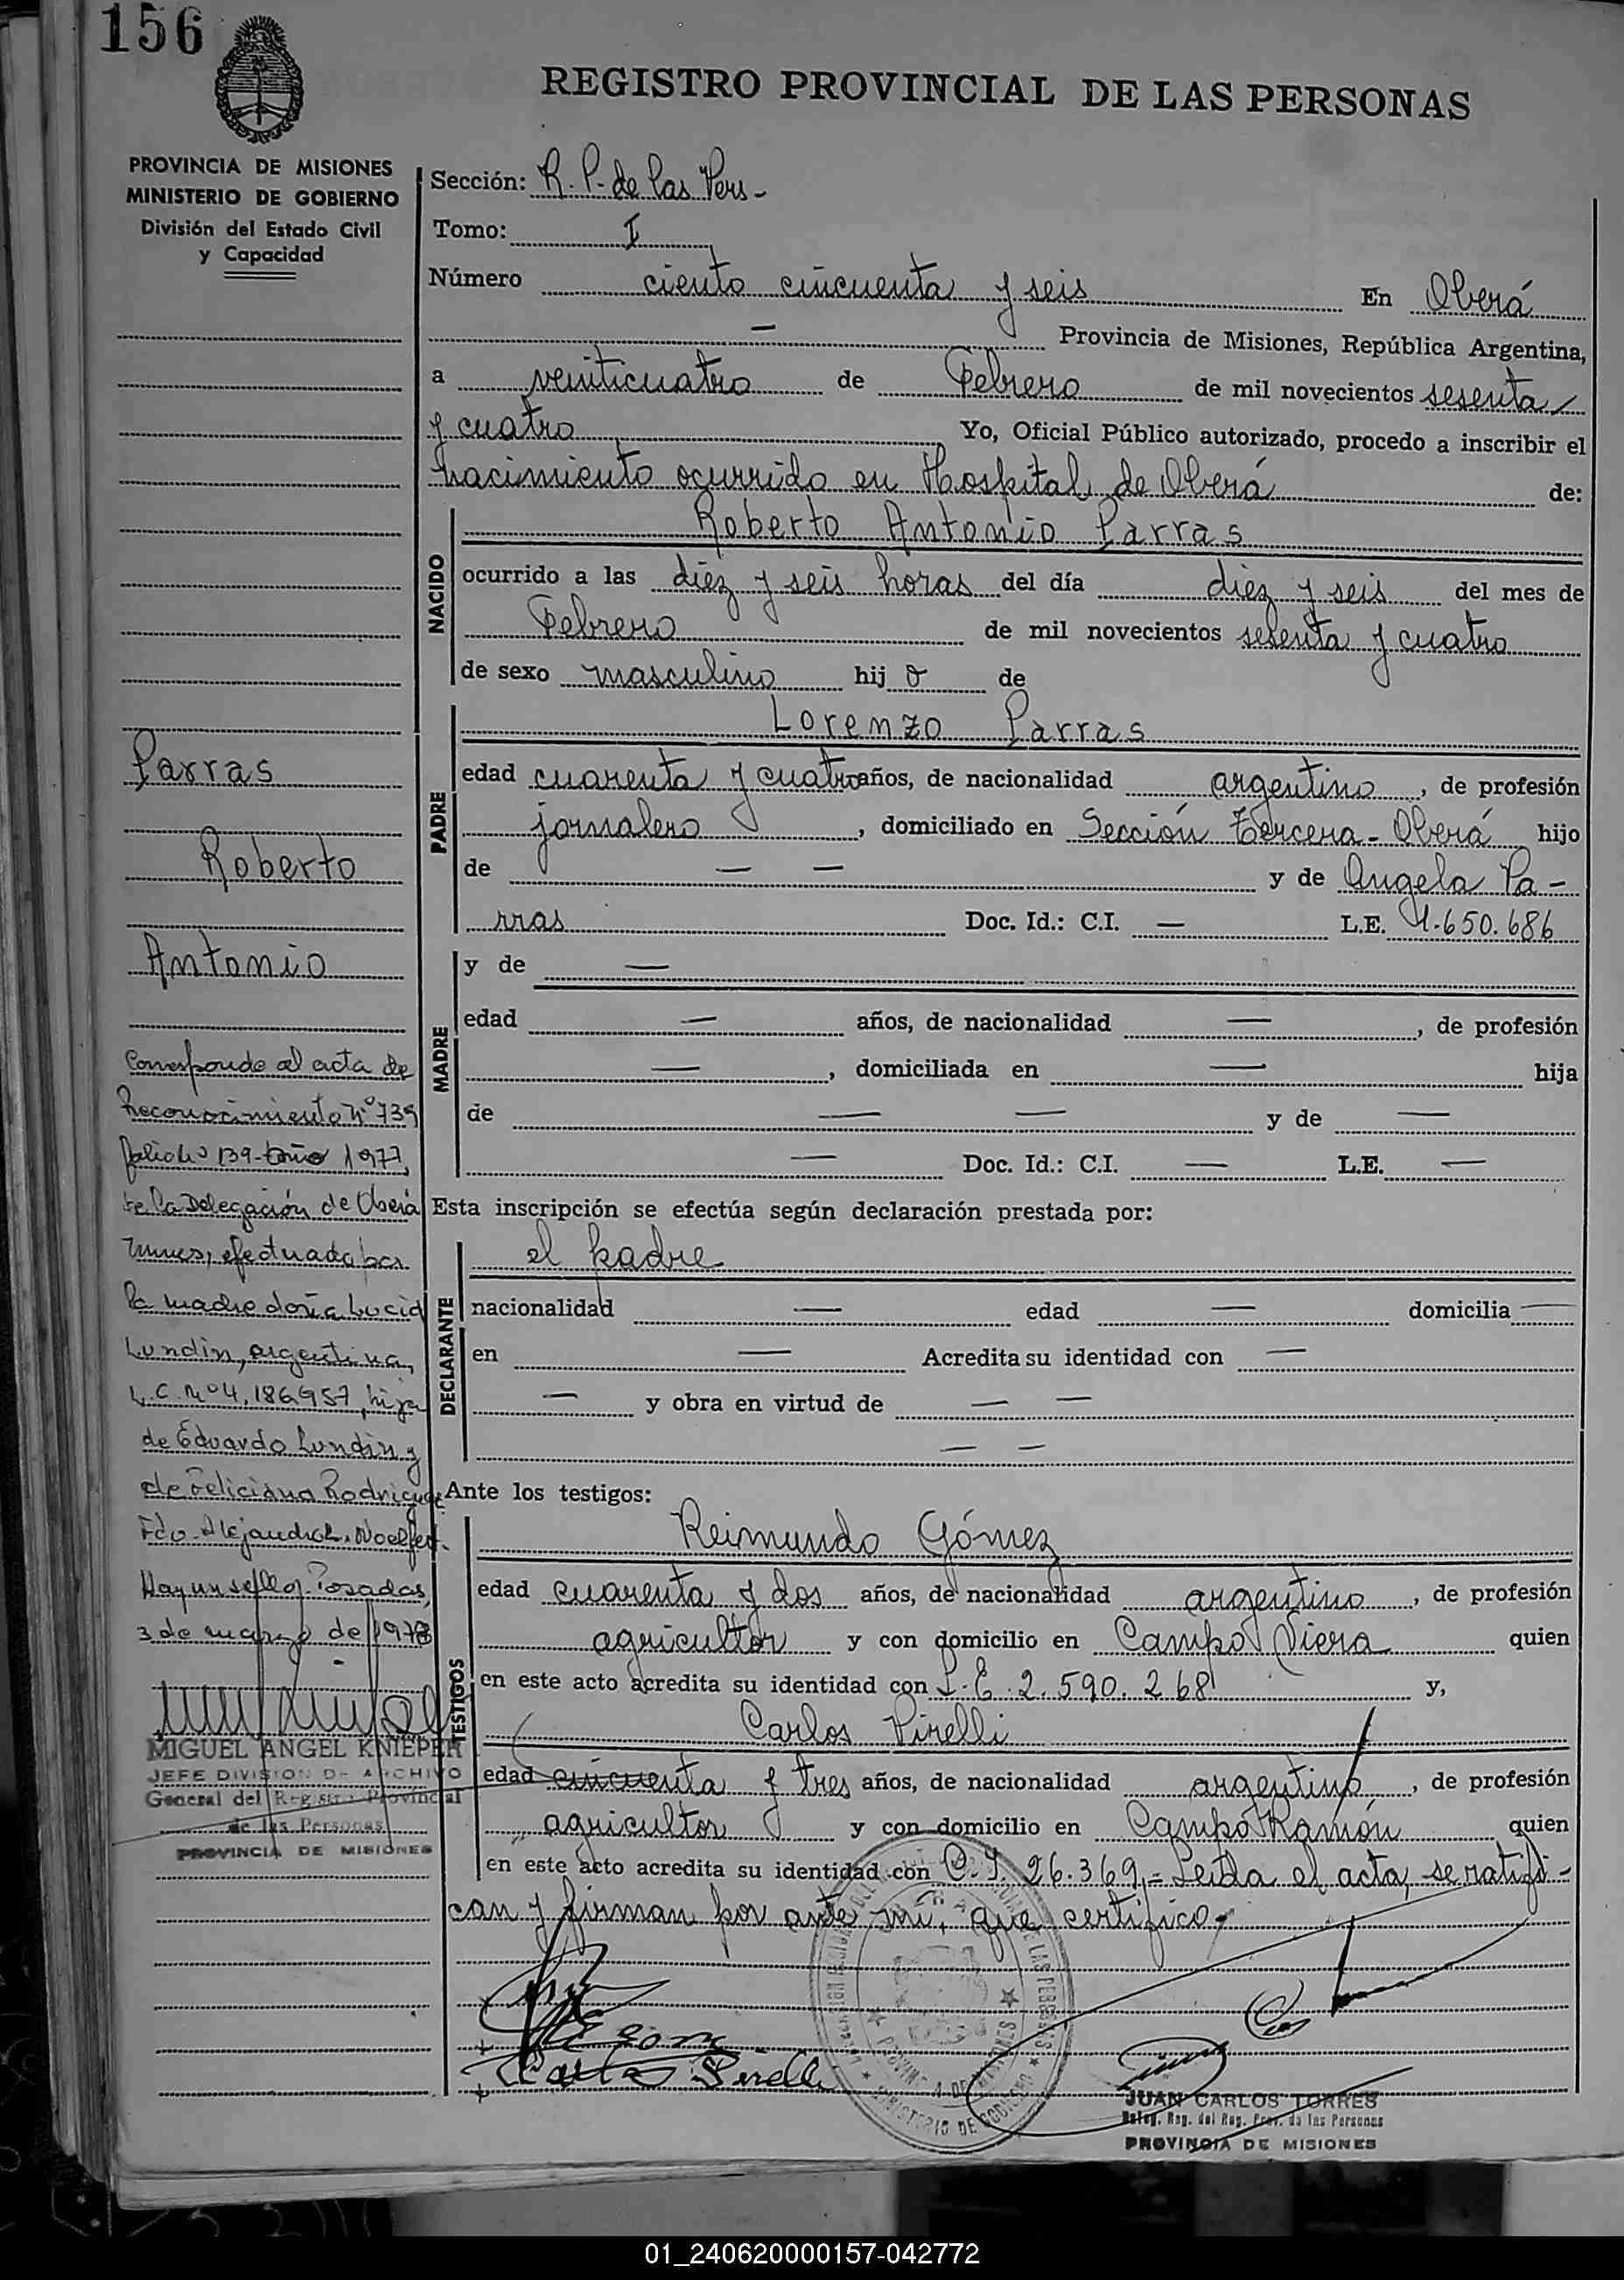 156
REGISTRO PROVINCIAL DE LAS PERSONAS
PROVINCIA DE MISIONES
MINISTERIO DE GOBIERNO
División del Estado Civil
y Capacidad
Sección: R. P. de las Pers-
Tomo: I
Número ciento cincuenta y seis En Oberá
— Provincia de Misiones, República Argentina,
a veinticuatro de Febrero de mil novecientos sesenta
y cuatro Yo, Oficial Público autorizado, procedo a inscribir el
nacimiento ocurrido en Hospital de Oberá de:
NACIDO
Roberto Antonio Parras
ocurrido a las diez y seis horas del día diez y seis del mes de
Febrero de mil novecientos sesenta y cuatro
de sexo masculino hijo de
PADRE
Lorenzo Parras
edad cuarenta y cuatro años, de nacionalidad argentino, de profesión
jornalero, domiciliado en Sección Tercera - Oberá hijo
de — — y de Angela Pa-
rras Doc. Id.: C.I. — L.E. 1.650.686
MADRE
y de —
edad — años, de nacionalidad —, de profesión
—, domiciliada en — hija
de — — y de —
— Doc. Id.: C.I. — L.E. —
Esta inscripción se efectúa según declaración prestada por:
DECLARANTE
el padre
nacionalidad — edad — domicilia —
en — Acredita su identidad con —
— y obra en virtud de — —
— —
Ante los testigos:
TESTIGOS
Reimundo Gómez
edad cuarenta y dos años, de nacionalidad argentino, de profesión
agricultor y con domicilio en Campo Viera quien
en este acto acredita su identidad con L.E. 2.590.268 y,
Carlos Pirelli
edad cincuenta y tres años, de nacionalidad argentino, de profesión
agricultor y con domicilio en Campo Ramón quien
en este acto acredita su identidad con C.I. 26.369.- Leida el acta, se ratifi-
can y firman por ante mi, que certifico.
Parras
Roberto
Antonio
Corresponde al acta de
Reconocimiento Nº 739
folio Nº 139 - año 1977,
de la Delegación de Oberá
efectuada por
la madre doña Lucia
Lundin, argentina,
L.C. Nº 4.186957, hija
de Eduardo Lundin y
de Feliciana Rodriguez
Fdo. Alejandro
Hay un sello. Posadas,
3 de marzo de 1978
MIGUEL ANGEL KNIEPER
JEFE DIVISION DE ARCHIVO
General del Registro Provincial
de las Personas
PROVINCIA DE MISIONES
Carlos Pirelli
MINISTERIO DE GOBIERNO
JUAN CARLOS TORRES
Deleg. Reg. del Reg. Prov. de las Personas
PROVINCIA DE MISIONES
01_240620000157-042772